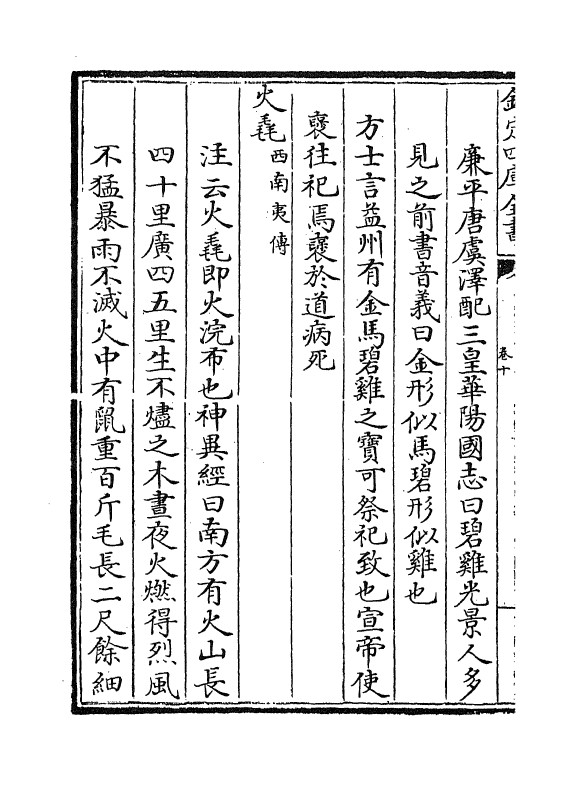 欽定四庫全書
卷十
廉平唐虞澤配三皇華陽國志曰碧雞光景人多
見之前書音義曰金形似馬碧形似雞也
方士言益州有金馬碧雞之寶可祭祀致也宣帝使
襃往祀焉襃於道病死
火毳西南夷傳
注云火毳即火浣布也神異經曰南方有火山長
四十里廣四五里生不燼之木晝夜火燃得烈風
不猛暴雨不滅火中有鼠重百斤毛長二尺餘細